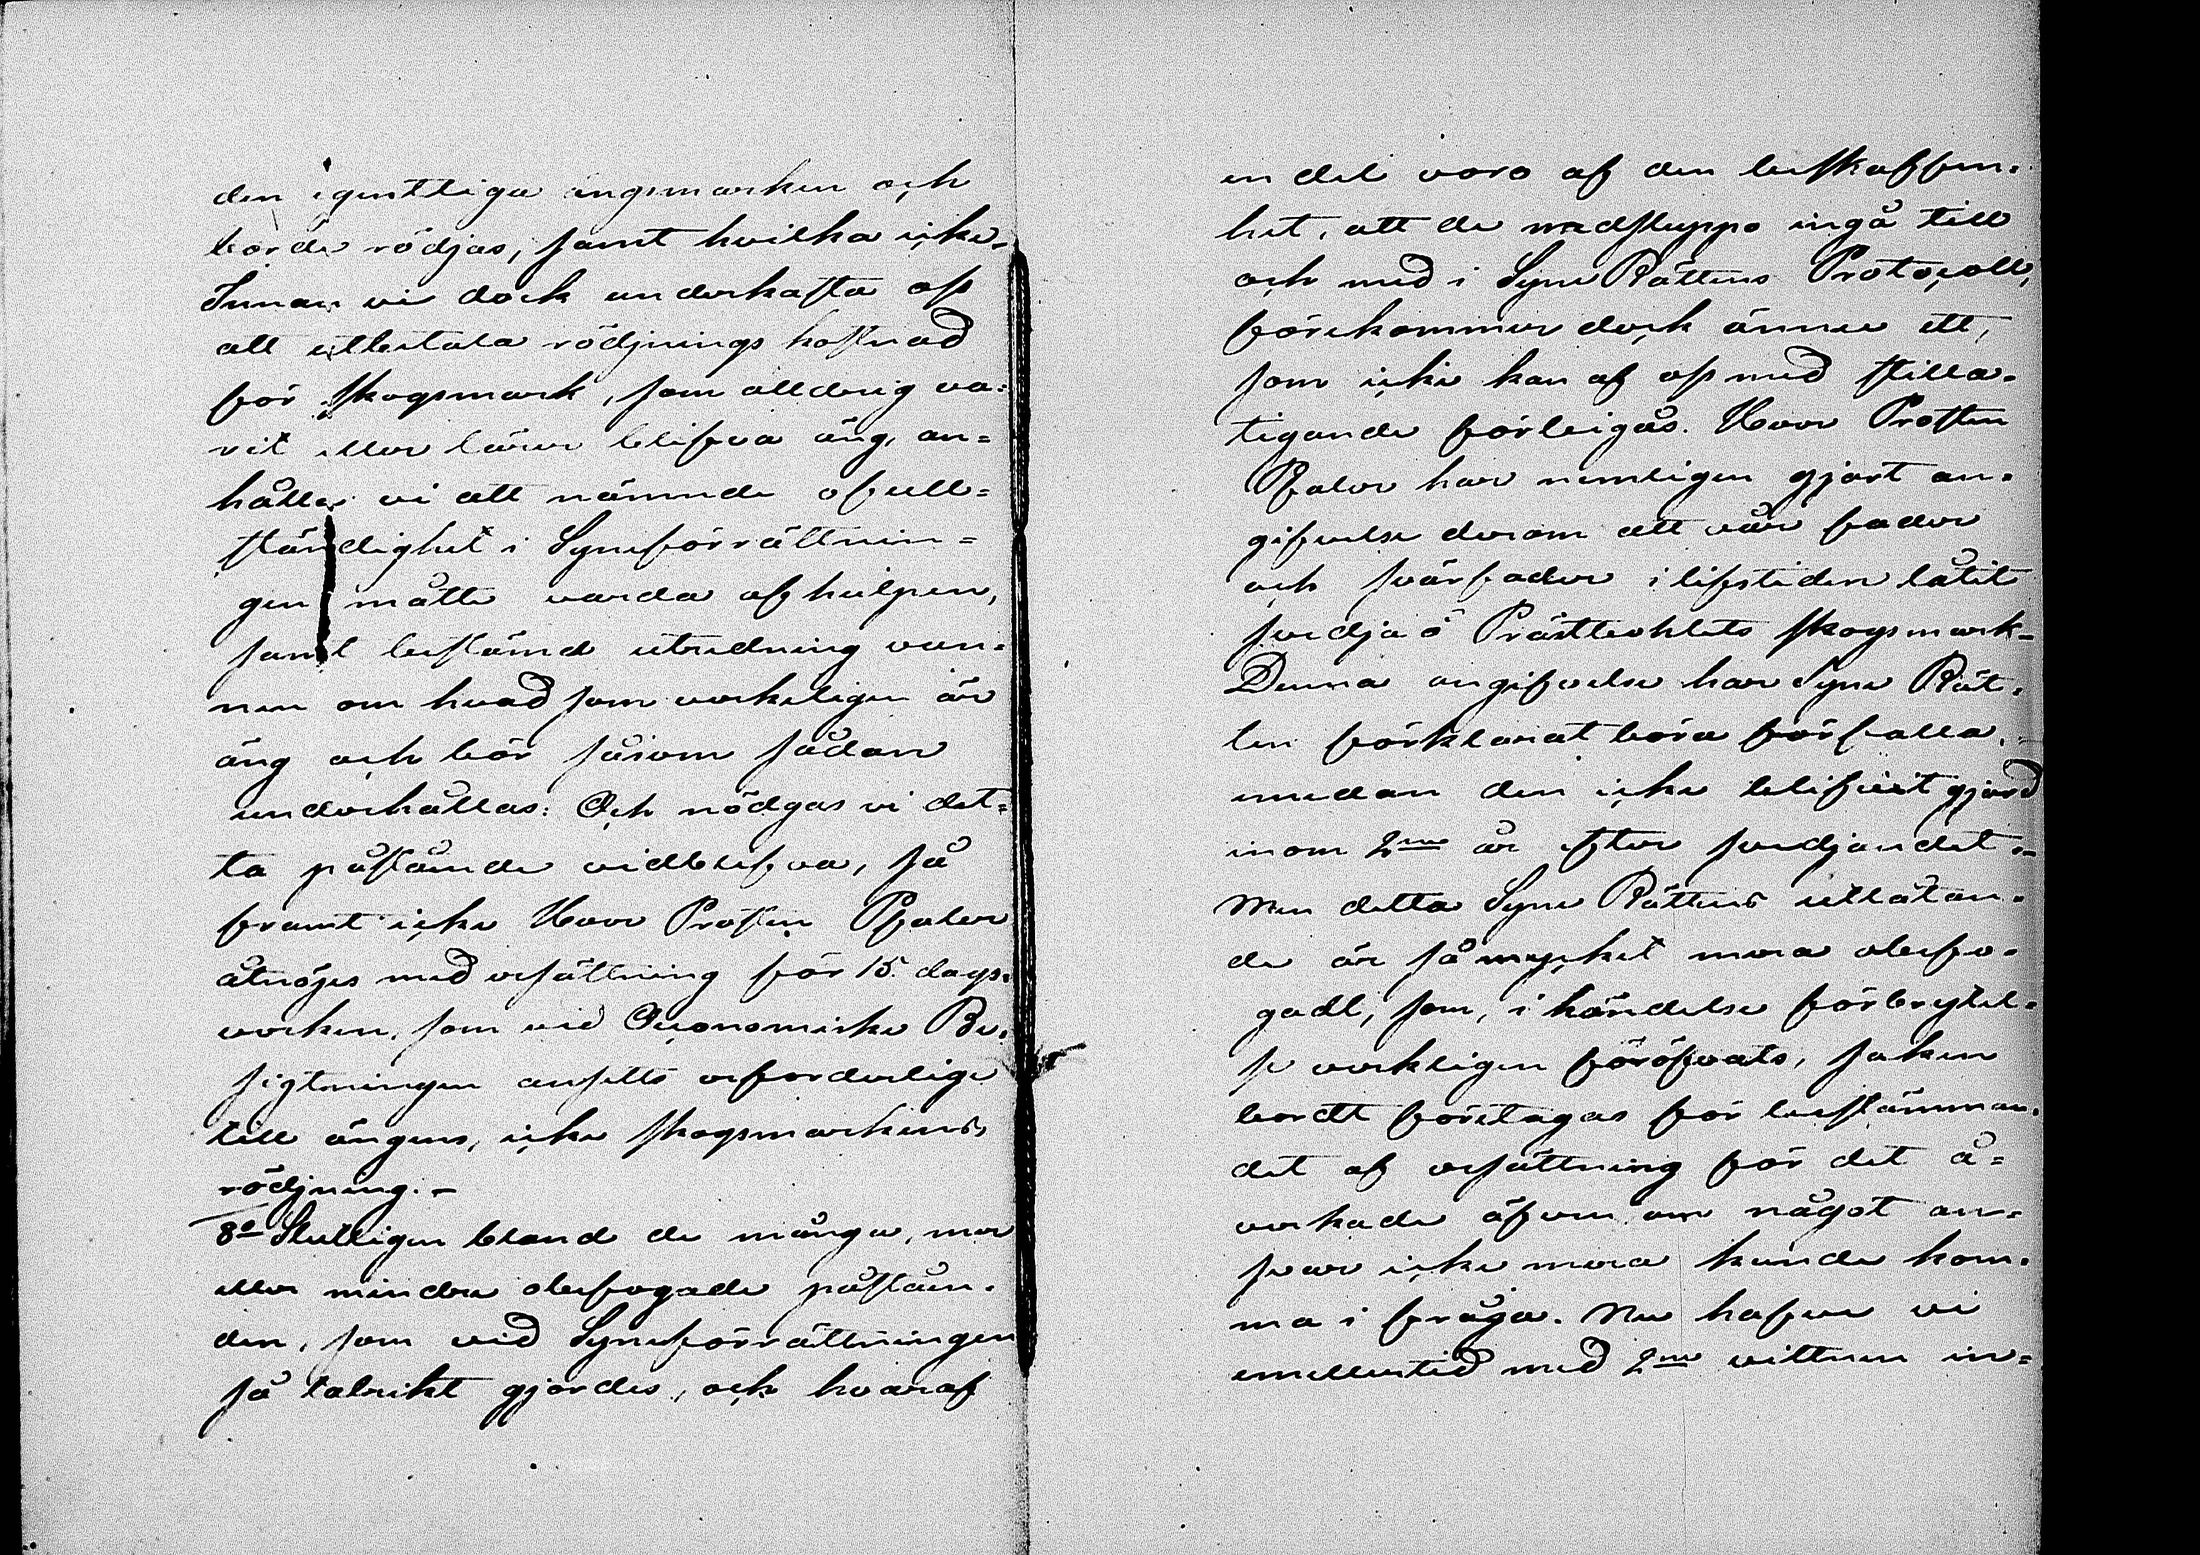 den egentliga ängsmarken och
borde rödjas, samt hvilka icke.
Innan vi dock underkasta oss
att utbetala rödjnings kostnad
för skogsmark, som alldrig va-
rit eller lärer blifva äng, an-
hålla vi att nämnde ofull-
ständighet i Syneförrättnin-
gen måtte varda afhulpen,
samt bestämd utredning vun-
nen om hvad som verkeligen är
äng och bör såsom sådan
underhållas: Och nödgas vi det-
ta påstående vidblifva, så
framt icke Herr Prosten Pfaler
åtnöjes med ersättning för 15. dags-
verken, som vid Oeconomiske Be-
sigtningen ansetts erforderlige
till ängens, icke skogsmarkens,
rödjning.-
8o Slutligen bland de många, mer
eller mindre obefogade påståen-
den, som vid Syneförrättningen
så talrikt gjordes, och hvaraf
en del voro af den beskaffen-
het, att de medsluppo ingå till
och med i Syne Rättens Protocoll,
förekommer dock ännu ett,
som icke kan af oss med stilla-
tigande förbigås. Herr Prosten
Pfaler har nemligen gjort an-
gifvelse derom att vår fader
och svärfader i lifstiden låtit
svedja å Prästbohlets skogsmark-
Denna angifvelse har Syne Rät-
ten förklarat böra förfalla,
emedan den icke blifvit gjord
inom 2ne år efter svedjandet.-
Men detta Syne Rättens utlåtan-
de är så mycket mera obefo-
gadt, som, i händelse förbrytel-
se verkligen föröfvats, saken
bordt företagas för bestämman-
det af ersättning för det å-
verkade äfven om något an-
svar icke mera kunde kom-
ma i fråga. Nu hafva vi
emellertid med 2ne vittnen in-